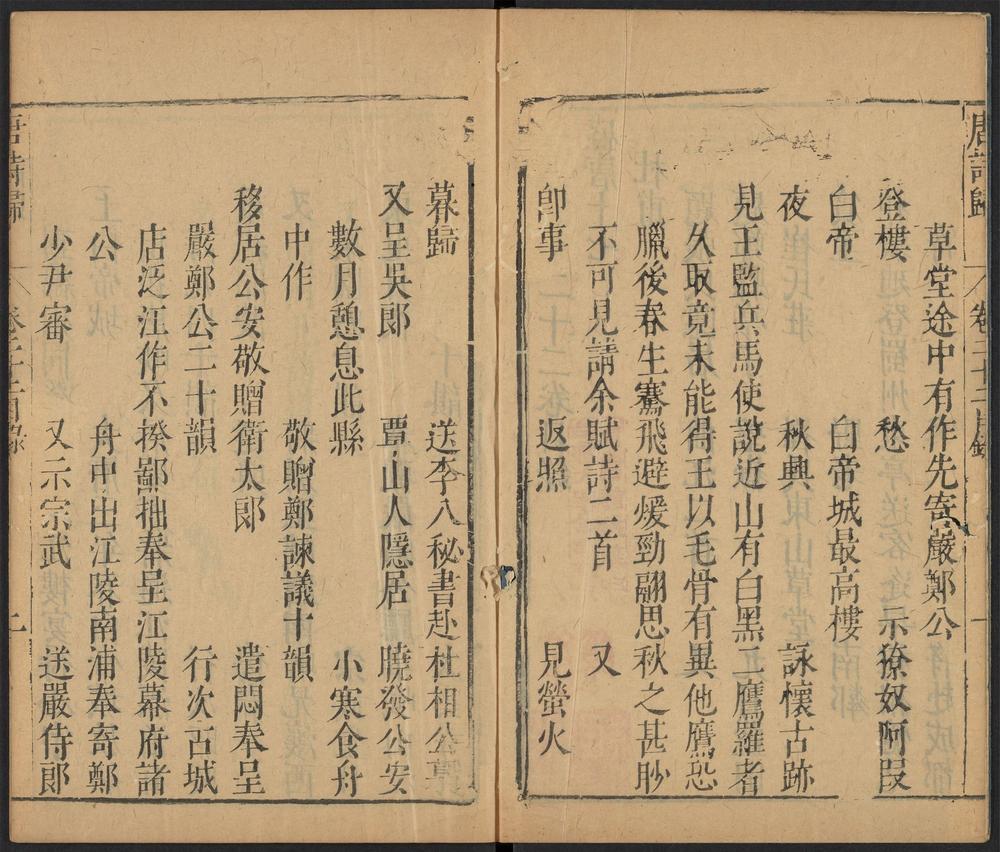 唐詩歸 卷二十二目錄 一
草堂途中有作先寄嚴鄭公
登樓 愁 示獠奴阿段
白帝 白帝城最高樓
夜 秋興 詠懷古跡
見王監兵馬使說近山有白黑二鷹羅者
久取竟未能得王以毛骨有異他鷹恐
臘後春生騫飛避煖勁翮思秋之甚眇
不可見請余賦詩二首 又
卽事 返照 見螢火
暮歸 送李八秘書赴杜相公幕
又呈吳郎 覃山人隱居 曉發公安
數月憩息此縣 小寒食舟
中作 敬贈鄭諫議十韻
移居公安敬贈衛太郎 遣悶奉呈
嚴鄭公二十韻 行次古城
店泛江作不揆鄙拙奉呈江陵幕府諸
公 舟中出江陵南浦奉寄鄭
少尹審 又示宗武 送嚴侍郎
唐詩歸 卷二十二目錄 二